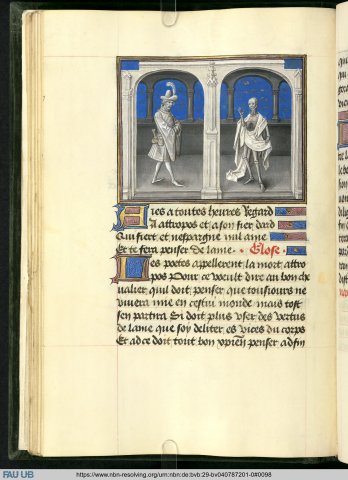 Aies a toutes heures Regard
A attropos et a son fier dard
Qui fiert et nespargne nul ame
Et te fera penser de lame. Glose.
Les poetes appellerent la mort attro
pos Pour ce veult dire au bon che
ualier quil doit penser que tousiours ne
viuera mie en cestui monde mais tost
sen partira Si doit plus vser des vertus
de lame que soy deliter es vices du corps
Et ad ce doit tout bon xpien penser adfin
FAU UB
https://www.nbn-resolving.org/urn:nbn:de:bvb:29-bv040787201-0#0098